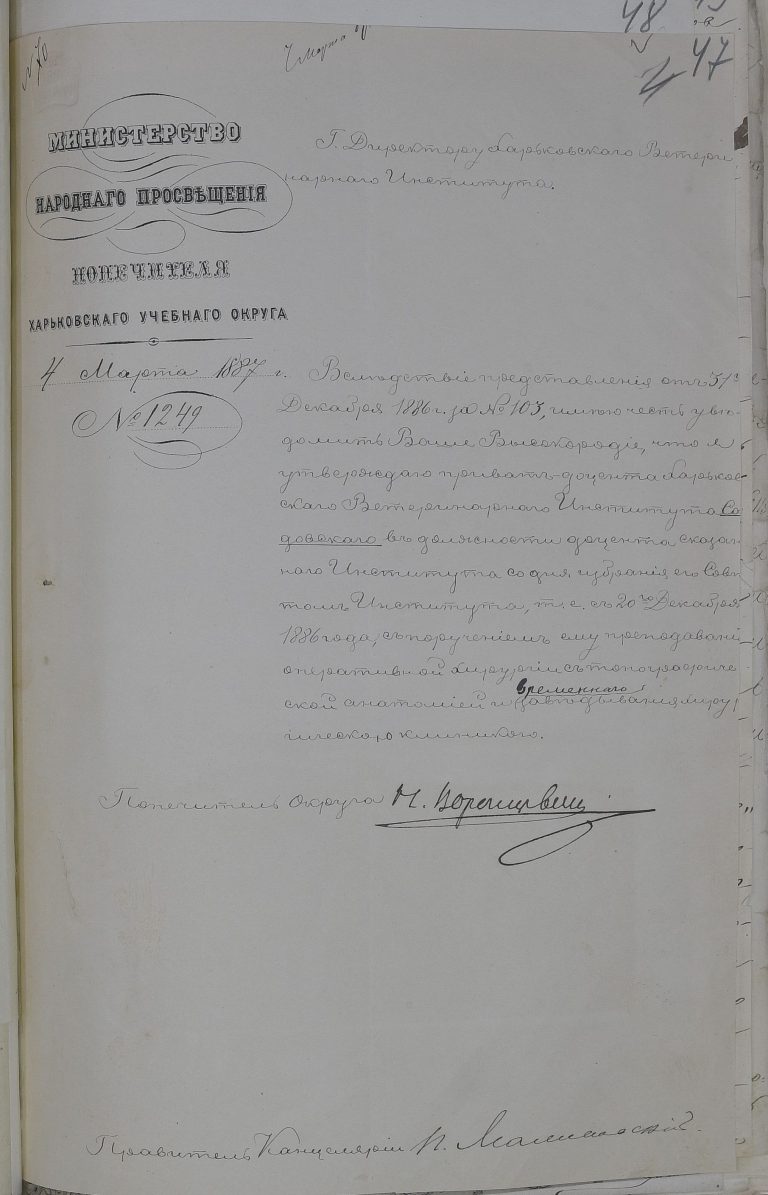 48
47
№ 70
7 Марта
МИНИСТЕРСТВО
НАРОДНАГО ПРОСВѢЩЕНІЯ
ПОПЕЧИТЕЛЯ
ХАРЬКОВСКАГО УЧЕБНАГО ОКРУГА
4 Марта 1887 г.
№ 1249
Г. Директору Харьковскаго Ветери
нарнаго Института.
Вслѣдствіе представленія отъ 31го
Декабря 1886 г. за № 103, имѣю честь увѣ-
домить Ваше Высокородіе, что я
утверждаю приватъ-доцента Харьков
скаго Ветеринарнаго Института Са
довскаго въ должности доцента сказан
наго Института со дня избранія его Совѣ
томъ Института, т. е. съ 20го Декабря
1886 года, съ порученіемъ ему преподавані
оперативной хирургіи съ топографиче
ской анатоміей и временнаго завѣдыванія хирур
гическою клиникою.
Попечитель Округа Н. Воронцовъ
Правитель Канцеляріи